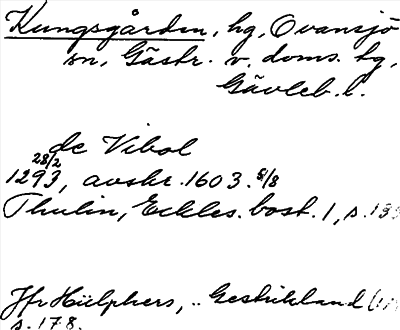 Kungsgården, hg, Ovansjö
sn, Gästr. v. doms. tg,
Gävleb. l.
de Vibol
28/2
1293, avskr. 1603. 8/8
Thulin, Eckles. bost. 1, s.
Jfr Hülphers, .. Gestrikland
s. 178.